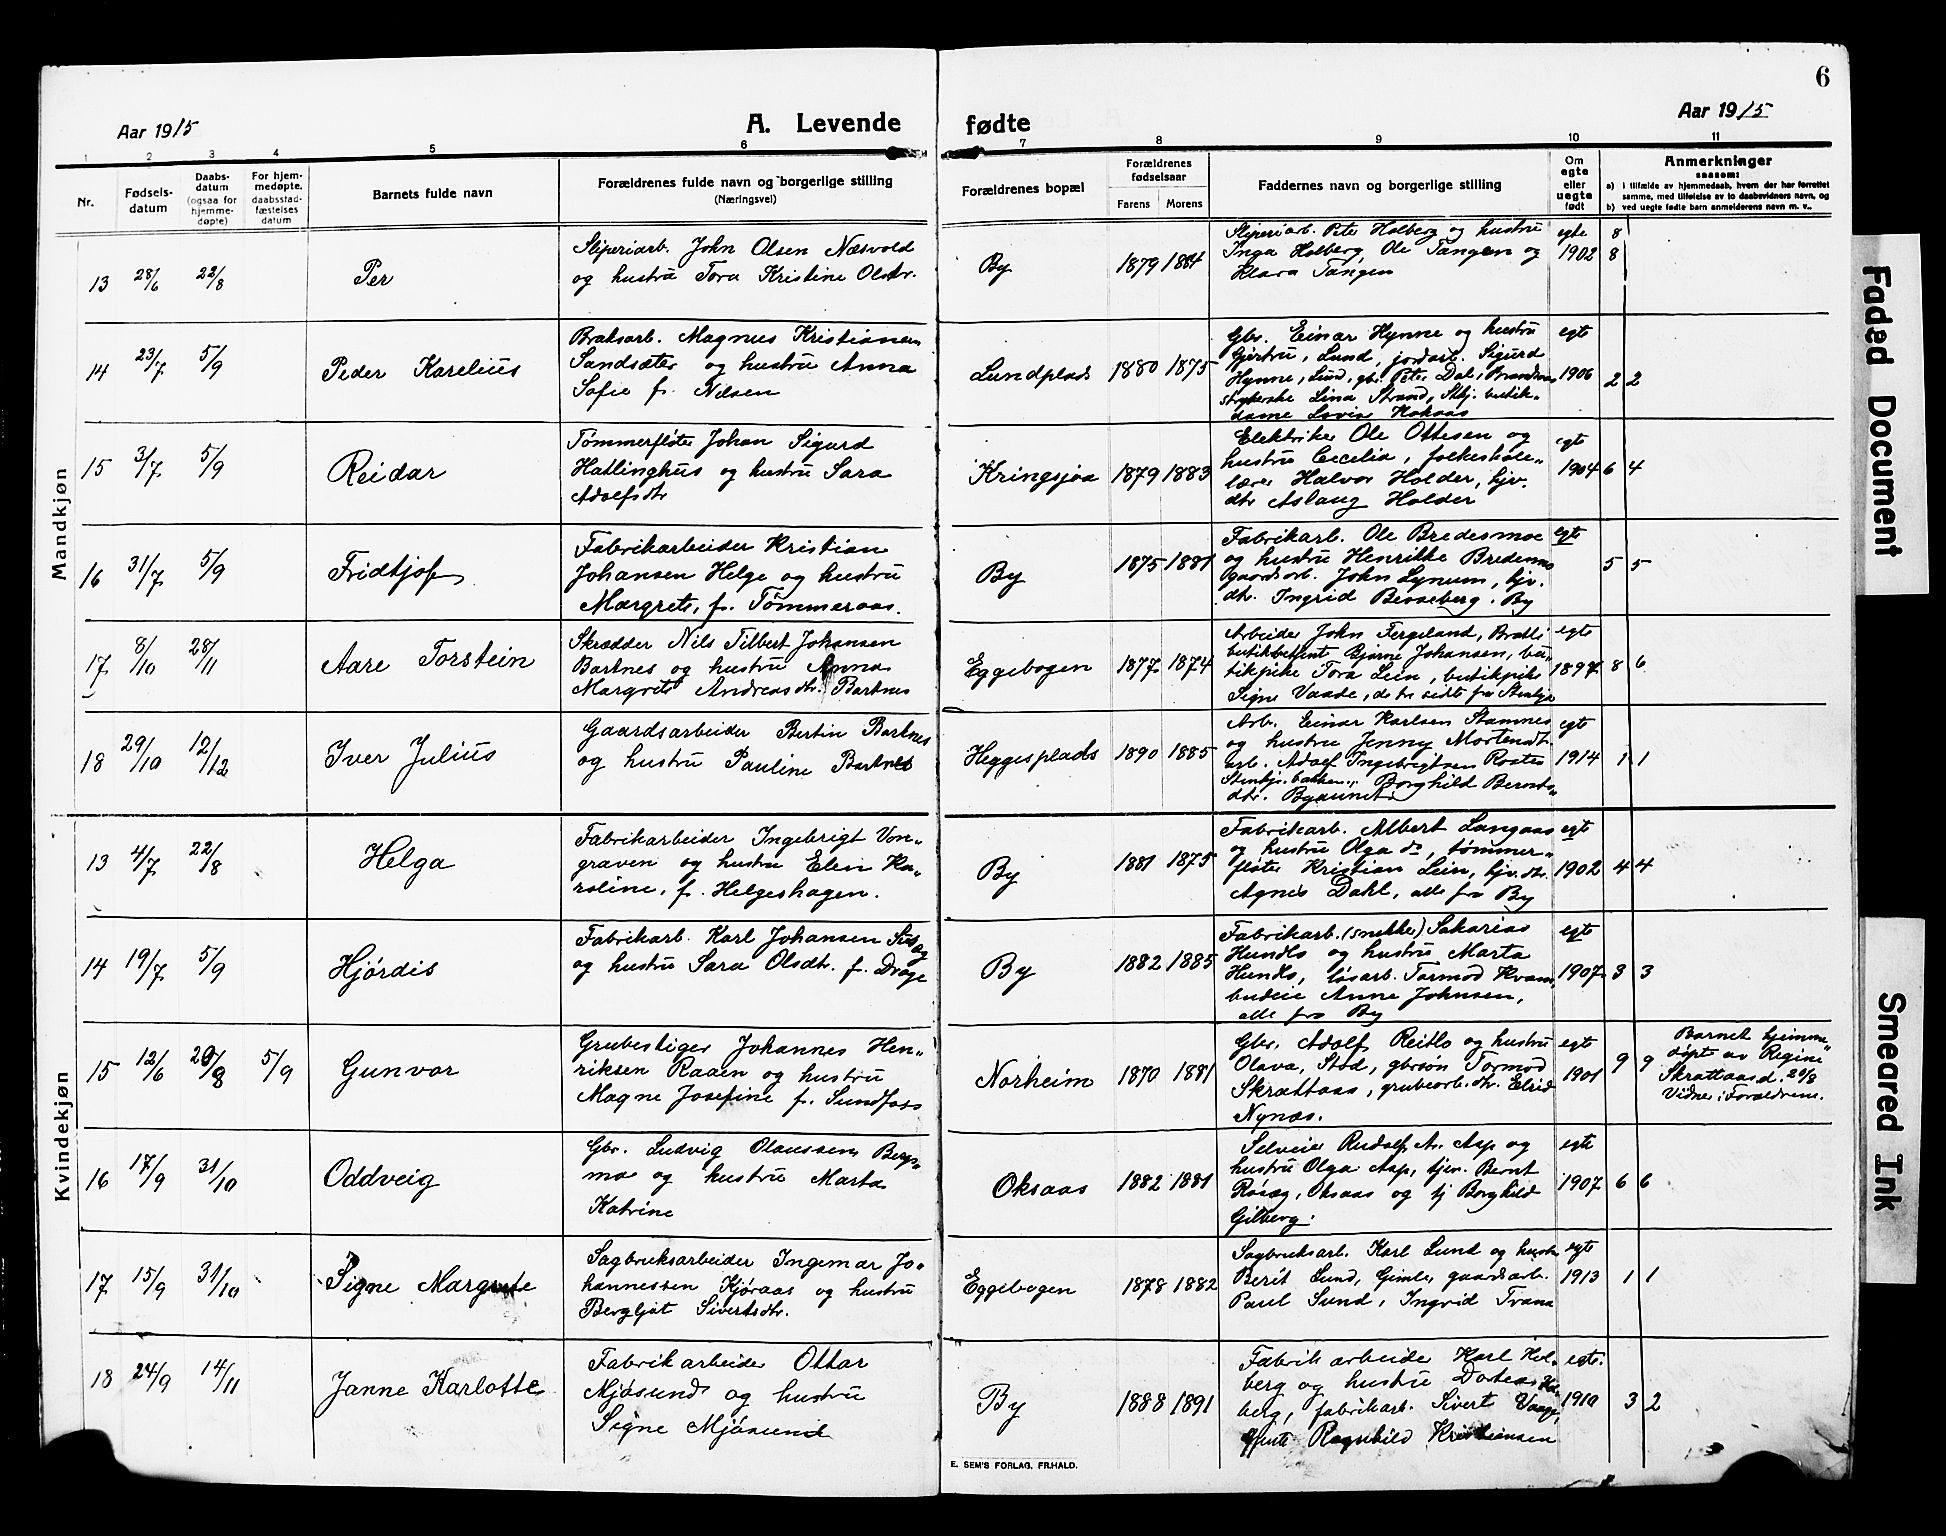 6
Aar 1915
A. Levende
fødte
Aar 1915
1 2 3 4 5 6 7 8 9 10 11
Nr.
Fødsels-
datum
Daabs-
datum
(ogsaa for
hjemme-
døpte)
For hjem-
medøpte,
daabsstad-
fæstelses
datum
Barnets fulde navn
Forældrenes fulde navn og borgerlige stilling
(Næringsvei)
Forældrenes bopæl
Forældrenes
fødselsaar
Farens Morens
Faddernes navn og borgerlige stilling
Om
egte
eller
uegte
født
Anmerkninger
saasom:
a) i tilfælde av hjemmedaab, hvem der har forrettet
samme, med tilføielse av to daabsvidners navn, og
b) ved uegte fødte barn anmelderens navn m. v..
Mandkjøn
13 28/6 22/8 Per
Sliperiarb. John Olsen Næsvold
og hustru Tora Kristine Olsdtr.
By 1879 1884
Sliperiarb. Peter Holberg og hustru
Inga Holberg, Ole Tangen og
Klara Tangen
egte
1902
8
8
14 23/7 5/9 Peder Karelius
Bruksarb. Magnus Kristiansen
Sandsæter og hustru Anna
Sofie f. Nilsen
Lundplads 1880 1875
Gbr. Einar Hynne og hustru
Gjertru, Lund, jordarb. Sigurd
Hynne, Lund, gbr. Peter Dal,
strykerske Lina Strand, Stkj. butik-
dame Lovise Kokaas
egte
1906 2 2
15 3/7 5/9 Reidar
Tømmerfløter Johan Sigurd
Hatlinghus og hustru Sara
Adolfsdtr
Kringsjaa 1879 1883
Elektriker Ole Ottesen og
hustru Cecilia, folkeskole-
lærer Halvor Holder, hjv.
dtr Aslaug Holder
egte
1904 6 4
16 31/7 5/9 Fridtjof
Fabrikarbeider Kristian
Johansen Helge og hustru
Margrete, f. Tømmeraas.
By 1875 1881
Fabrikarb. Ole Bredesmoe
og hustru Henrikke Bredesmo
gaardsarb. John Lynum, hjv.
dtr. Ingrid Besseberg. By
egte
5 5
17 8/10 28/11 Aare Torstein
Skrædder Nils Tilbert Johansen
Bartnes og hustru Anna
Margrete Andreasdtr. Bartnes
Eggebogen 1877 1874
Arbeider John Fergeland,
butikbetjent Bjarne Johansen, bu-
tikpike Tora Lein, butikpike
Signe Vaade, de to sidste fra Stenkjær
egte
1897 8 6
18 29/10 12/12 Iver Julius
Gaardsarbeider Bertin Bartnes
og hustru Pauline Bartnes
Heggesplads 1890 1885
Arb. Einar Karlsen Stamnes
og hustru Jenny Mortensdt.
arb. Adolf Ingebrigtsen
Borghild Bernts-
dtr. Byaunet
egte
1914 1 1
Kvindekjøn
13 4/7 22/8 Helga
Fabrikarbeider Ingebrigt Von-
graven og hustru Elen Ka-
roline, f. Helgeshagen.
By 1881 1875
Fabrikarb. Albert Langaas
og hustru Olga do, tømmer-
fløter Kristian Lein, hjv. dtr.
Agnes Dahl, alle fra By
egte
1902 4 4
14 19/7 5/9 Hjørdis
Fabrikarb. Karl Johansen
og hustru Sara Olsdtr. f. Drage
By 1882 1885
Fabrikarb. (snekker) Sakarias
Hundlo og hustru Marta
Hundlo, løsarb. Tormod Kvam
budeie Anne Johnsen,
alle fra By
egte
1907 3 3
15 12/6 20/8 5/9 Gunvor
Grubestiger Johannes Hen-
riksen Raaen og hustru
Magne Josefine f. Sundfoss
Norheim 1870 1881
Gbr. Adolf Reitlo og hustru
Olava, Stod, gbrsøn Tormod
Skrattaas, grubearb. dtr. Elrid
Nynæs.
egte
1901 9 9
Barnet hjemme-
døpt av Regine
Skrattaas d. 20/8
Vidner: Forældrene.
16 17/9 31/10 Oddveig
Gbr. Ludvig Olaussen Berg-
mo og hustru Marta
Katrine
Oksaas 1882 1881
Selveier Rudolf Ar. Aap og
hustru Olga Aap, tjen. Bernt
Røseg, Oksaas og tj Borghild
Gilberg.
egte
1907 6 6
17 15/9 31/10 Signe Margrete
Sagbruksarbeider Ingemar Jo-
hannessen Kjøraas og hustru
Bergljot Sivertsdtr.
Eggebogen 1878 1882
Sagbruksarb. Karl Lund og hustru
Berit Lund, Gimle, gaardsarb.
Paul Lund, Ingrid Trana
egte
1913 1 1
18 24/9 14/11 Janne Karlotte
Fabrikarbeider Ottar
Mjøsund og hustru
Signe Mjøsund
By 1888 1891
Fabrikarbeider Karl Hol-
berg og hustru Dortea Hol-
berg, fabrikarb. Sivert
Ragnhild Kristiansen
egte.
1910 3 2
E. SEM'S FORLAG, FR.HALD.
Faded Document
Smeared Ink